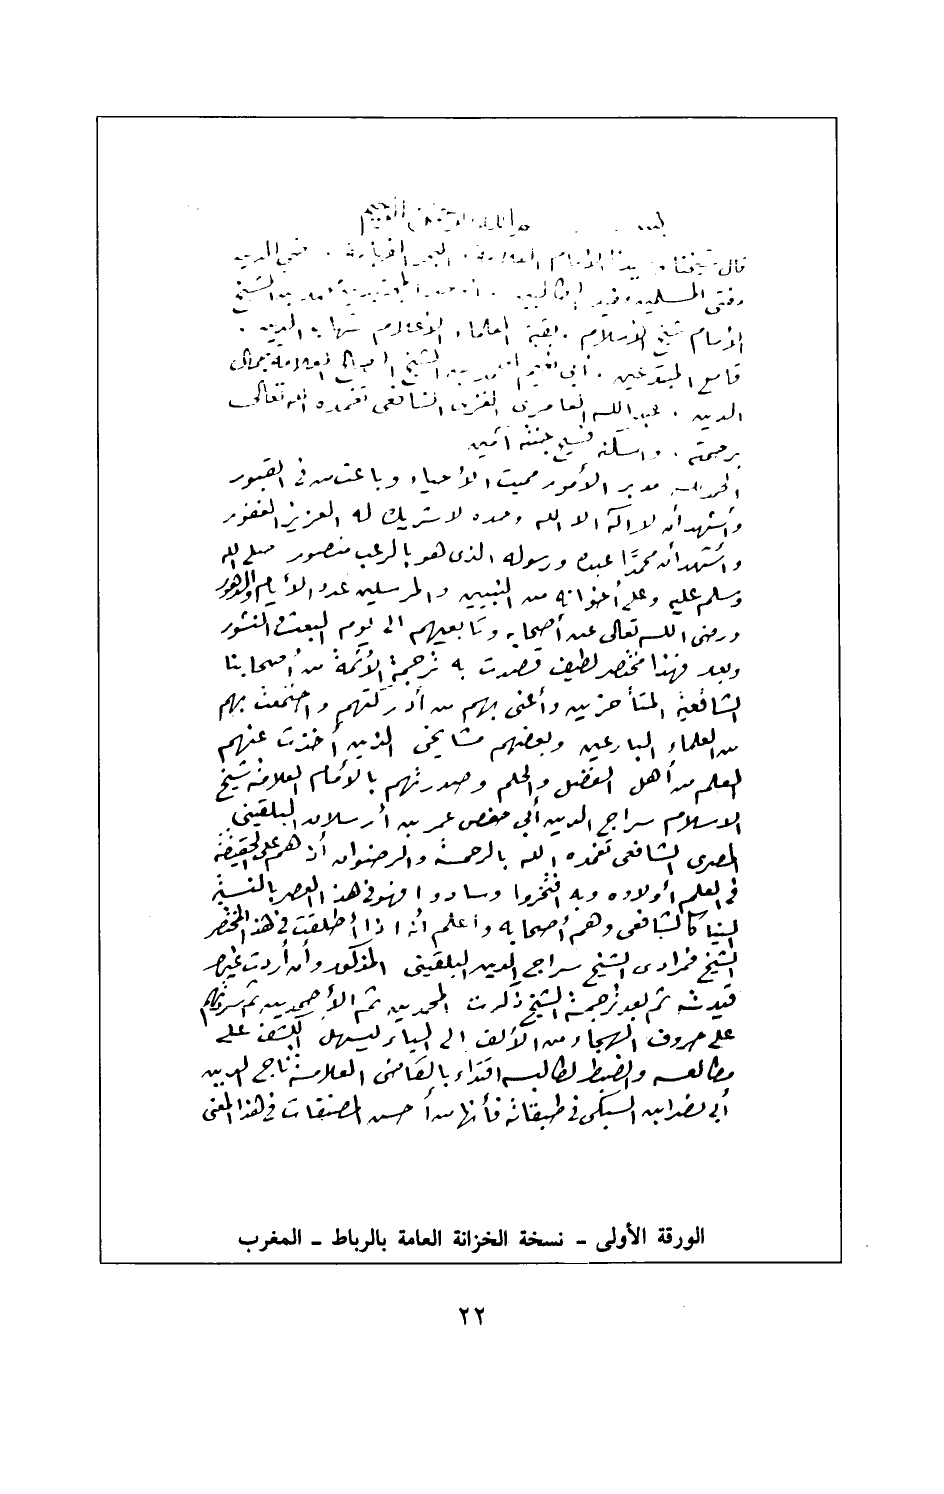 الله الرحمن الرحيم
قال شيخنا الإمام العلامة رضي الدين
مفتي المسلمين بن الشيخ
الإمام شيخ الإسلام بقية العلماء الأعلام شهاب الدين
قامع المبتدعين أبي نعيم أحمد بن الشيخ الصالح العلامة جمال
الدين عبد الله العامري الغزي الشافعي تغمده الله تعالى
برحمته وأسكنه فسيح جنته آمين
الحمد لله مدبر الأمور مميت الأحياء وباعث من في القبور
وأشهد أن لا إله الا الله وحده لا شريك له العزيز الغفور
وأشهد أن محمدًا عبده ورسوله الذي هو بالرعب منصور صلى الله
وسلم عليه وعلى أخوانه من النبيين والمرسلين عدد الأيام والدهور
ورضى الله تعالى عن أصحابه وتابعيهم الى يوم البعث والنشور
وبعد فهذا مختصر لطيف قصدت به ترجمة الأئمة من أصحابنا
الشافعية المتأخرين وأعنى بهم من أدركتهم واجتمعت بهم
من العلماء البارعين وبعضهم مشايخى الذين أخذت عنهم
العلم من أهل الفضل والحلم وصدرتهم بالأمام العلامة شيخ
الاسلام سراج الدين أبي حفص عمر بن أرسلان البلقيني
المصرى الشافعى تغمده الله بالرحمة والرضوان أذ هم على الحقيقة
في العلم أولاده وبه افتخروا وسادوا فهو في هذ العصر بالنسبة
الينا كالشافعى وهم أصحابه وأعلم أنه اذا أطلقت في هذ المختصر
الشيخ فمرادى الشيخ سراج الدين البلقينى المذكور وأن أردت غيره
قيدته ثم بعد ترجمة الشيخ ذكرت المحمدين ثم الأحمدين ثم سردتهم
على حروف الهجاء من الألف الى الياء ليسهل الكشف على
مطالعه والضبط لطالبه اقتداء بالقاضى العلامة تاج الدين
أبي نصر ابن السبكى في طبقاته فأنها من أحسن المصنفات في هذا المعنى
الورقة الأولى - نسخة الخزانة العامة بالرباط - المغرب
٢٢